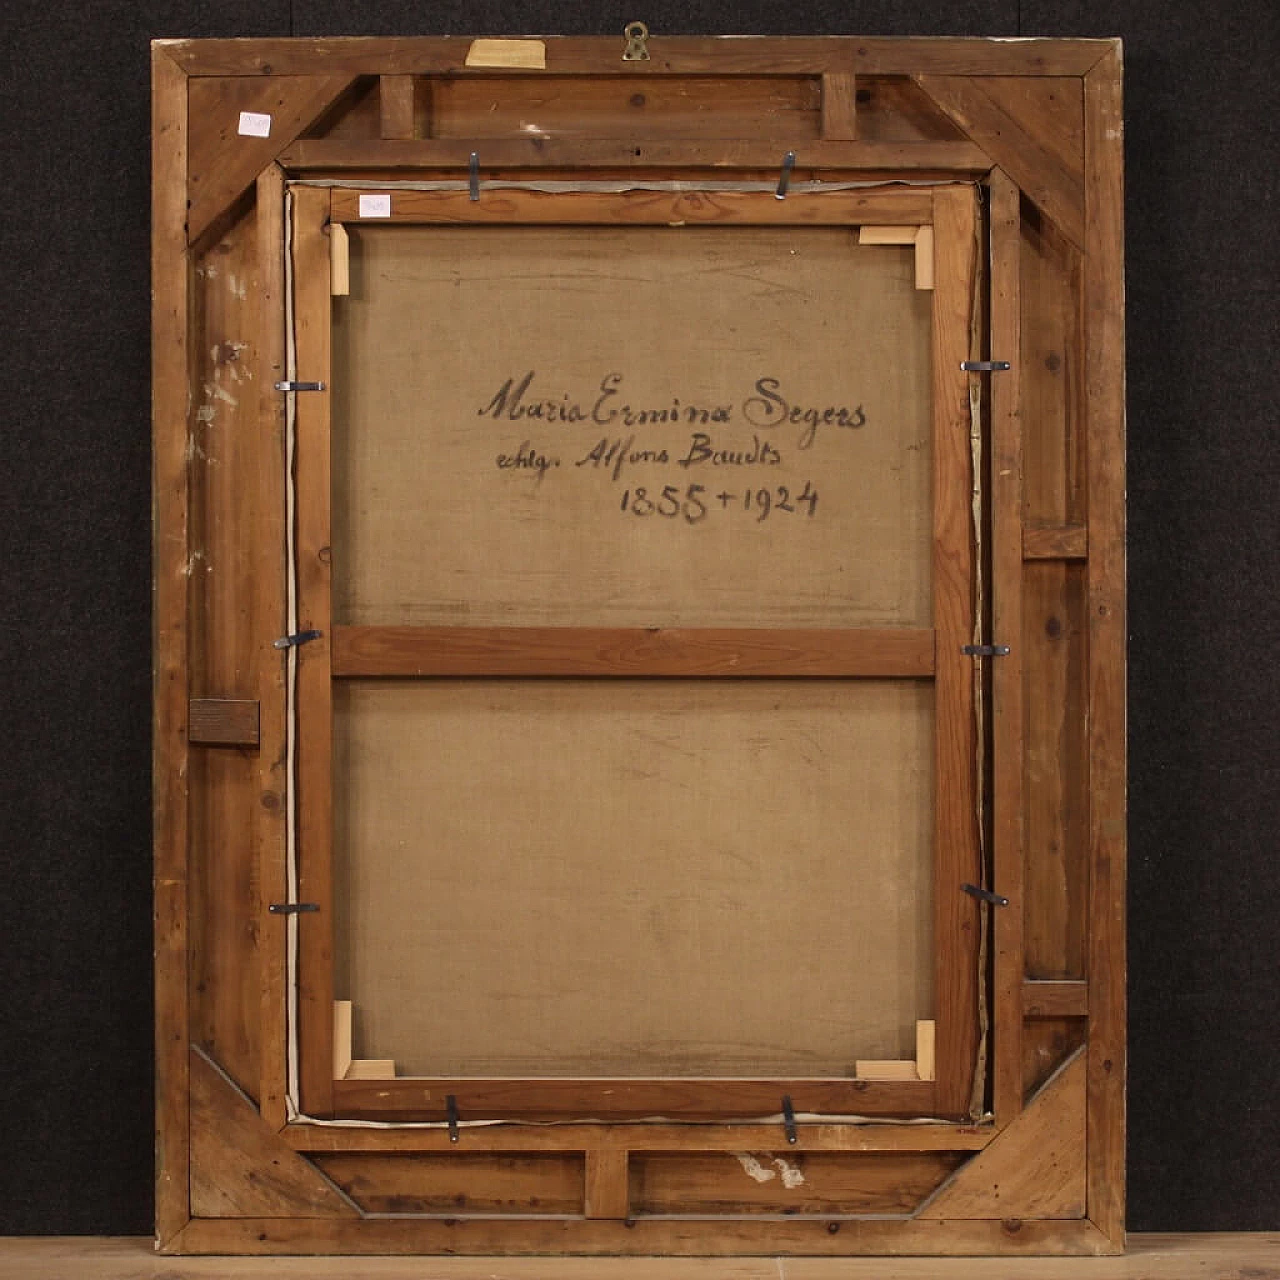 Maria Ermina Segers
echtg. Alfons Baudts
1855 + 1924